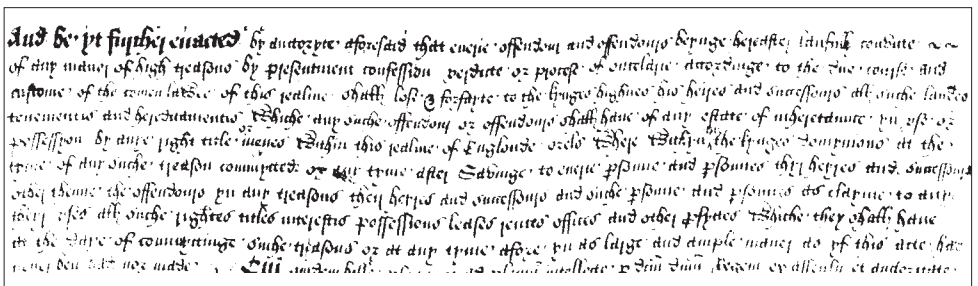 And be yt further enacted by auctoryte aforesaid that euerie offendour and offendours beynge hereafter laufully conuicte
of any maner of high treasons by presentment confession verdicte or proces of outelarie accordinge to the due course and
custome of the comen lawes of this realme shall lose & forfayte to the kynges highnes his heires and successours all suche landes
tenementis and hereditamentis Whiche any suche offendour or offendours shall have of any estate of inheretaunce yn use or
possession by anye right title or menes Within this realme of Englonde or els Where Within the kynges domynions at the
tyme of any suche treason commytted or any tyme after Savinge to euerie psonne and psonnes their heires and successours
other thenne the offendours yn any treasons their heyres and successours and suche psonne and psonnes as clayme to any
their uses all suche rightes titles interestis possessions leases rentes offices and other pfytes Whiche they shall have
at the daye of commyttinge suche treasons or at any tyme afore yn as large and ample maner as yf this acte had
never ben had nor made Cui quidem bille et intellecte p dcm dnm Regem ex assensu et auctoritate